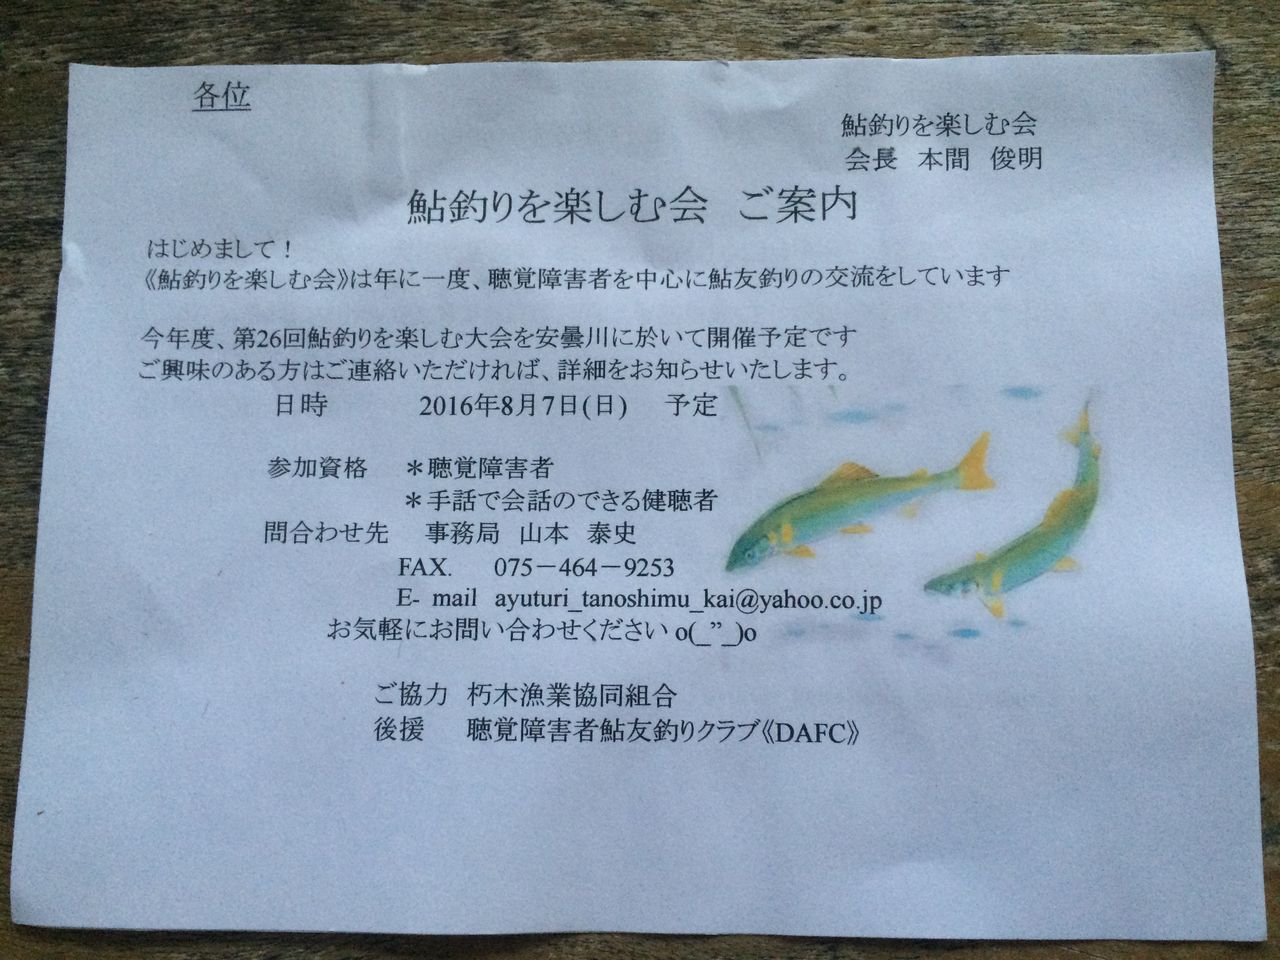 各位
鮎釣りを楽しむ会
会長　本間　俊明
鮎釣りを楽しむ会　ご案内
はじめまして！
《鮎釣りを楽しむ会》は年に一度、聴覚障害者を中心に鮎友釣りの交流をしています
今年度、第26回鮎釣りを楽しむ大会を安曇川に於いて開催予定です
ご興味のある方はご連絡いただければ、詳細をお知らせいたします。
日時　2016年8月7日(日)　予定
参加資格　＊聴覚障害者
＊手話で会話のできる健聴者
問合わせ先　事務局　山本　泰史
FAX.　075－464－9253
E- mail　ayuturi_tanoshimu_kai@yahoo.co.jp
お気軽にお問い合わせください o(_”_)o
ご協力　朽木漁業協同組合
後援　聴覚障害者鮎友釣りクラブ《DAFC》